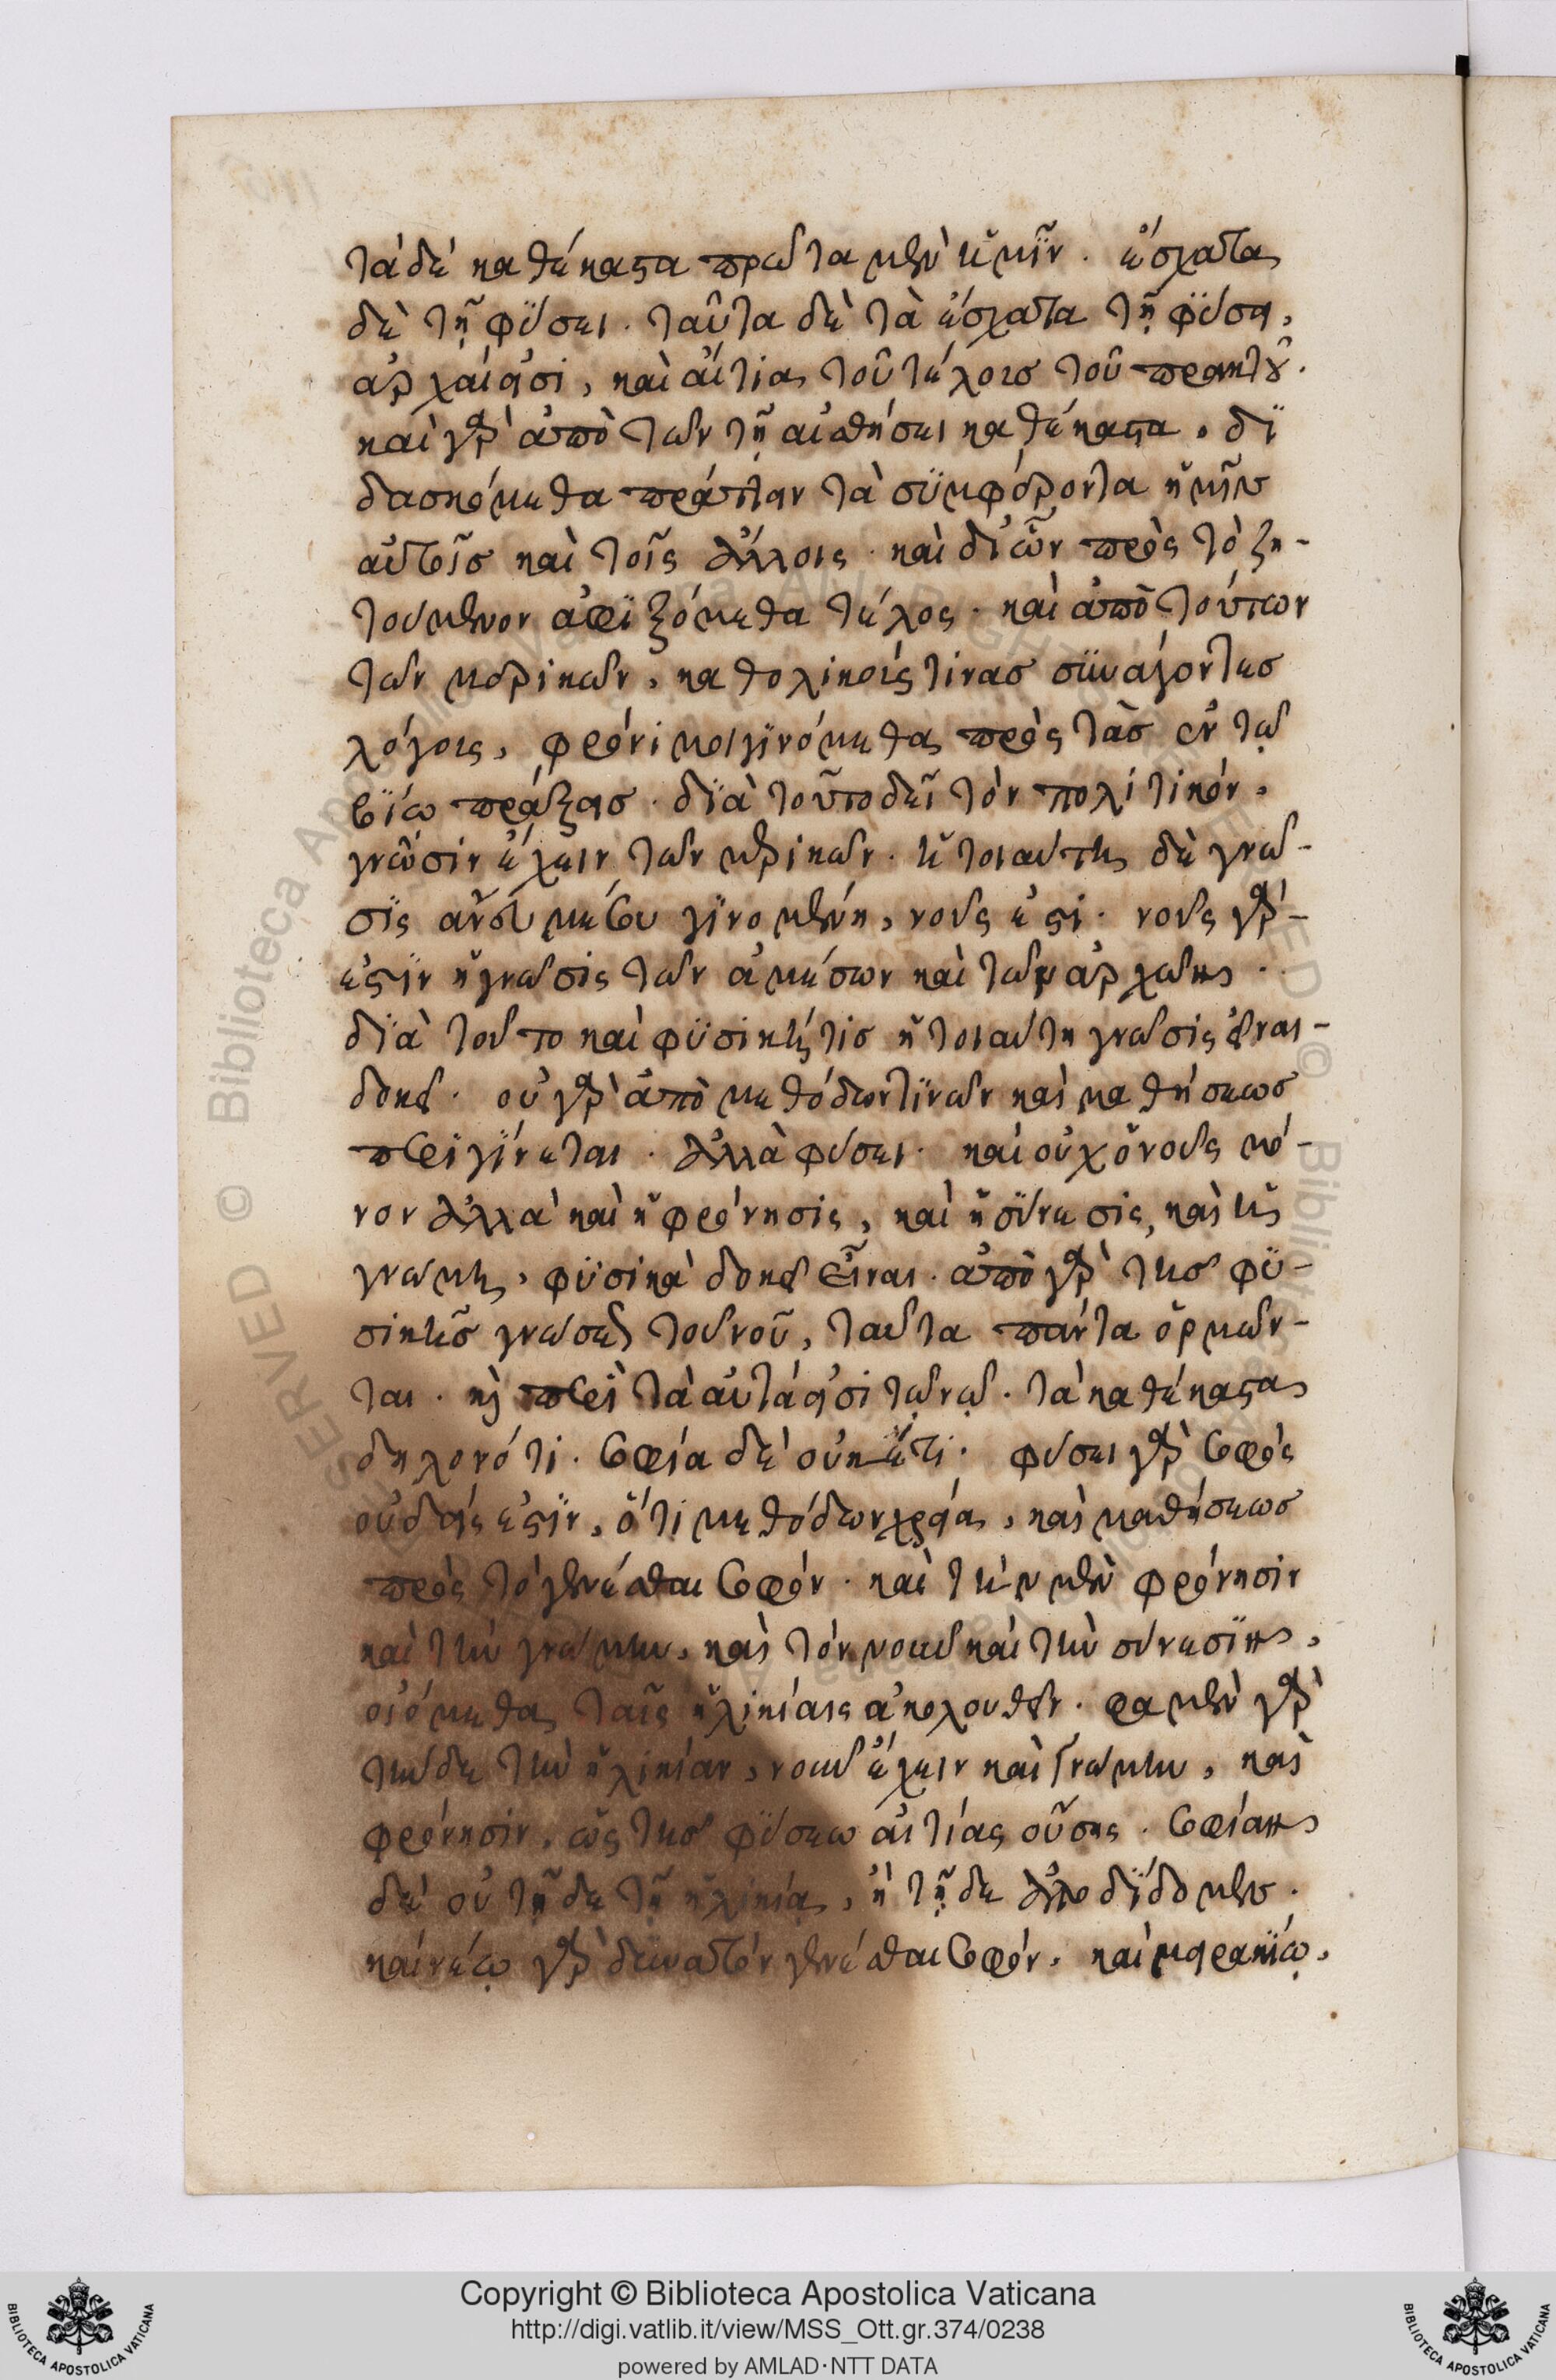 τὰ δὲ καθέκαστα πρῶτα μὲν ἡμῖν. ἔσχατα
δὲ τῇ φύσει. ταῦτα δὲ τὰ ἔσχατα τῇ φύσει,
ἀρχαί εἰσι, καὶ αἰτίαι τοῦ τέλους τοῦ πρακτοῦ.
καὶ γὰρ ἀπὸ τῶν τῇ αἰσθήσει καθέκαστα, δι
δασκόμεθα πράττειν τὰ συμφέροντα ἡμῖν
αὐτοῖς καὶ τοῖς ἄλλοις. καὶ δι' ὧν πρὸς τὸ ζη-
τούμενον ἀφιξόμεθα τέλος. καὶ ἀπὸ τούτων
τῶν μερικῶν, καθολικούς τινας συνάγοντες
λόγους, φρόνιμοι γινόμεθα πρὸς τὰς ἐν τῷ
βίῳ πράξεις. διὰ τοῦτο δεῖ τὸν πολιτικόν,
γνῶσιν ἔχειν τῶν μερικῶν. ἡ τοιαύτη δὲ γνῶ-
σις ἄνευ μέσου γινομένη, νοῦς ἐστι. νοῦς γάρ-
ἐστιν ἡ γνῶσις τῶν ἀμέσων καὶ τῶν ἀρχῶν.
διὰ τοῦτο καὶ φυσική τις ἡ τοιαύτη γνῶσις εἶναι-
δοκεῖ. οὐ γὰρ ἀπὸ μεθόδων τινῶν καὶ μαθήσεως
περιγίνεται. ἀλλὰ φύσει. καὶ οὐχ ὁ νοῦς μό-
νον ἀλλὰ καὶ ἡ φρόνησις, καὶ ἡ σύνεσις, καὶ ἡ
γνώμη, φυσικὰ δοκεῖ εἶναι. ἀπὸ γὰρ τῆς φυ-
σικῆς γνώσεως τοῦ νοῦ, ταῦτα πάντα ὁρμῶν-
ται. καὶ περὶ τὰ αὐτά εἰσι τῷ νῷ. τὰ καθέκαστα
δηλονότι. σοφία δὲ οὐκ ἔτι. φύσει γὰρ σοφὸς
οὐδείς ἐστιν, ὅτι μεθόδων χρεία, καὶ μαθήσεως
πρὸς τὸ γενέσθαι σοφόν. καὶ τὴν μὲν φρόνησιν
καὶ τὴν γνώμην, καὶ τὸν νοῦν καὶ τὴν σύνεσιν,
οἰόμεθα ταῖς ἡλικίαις ἀκολουθεῖν. φαμὲν γὰρ
τήνδε τὴν ἡλικίαν, νοῦν ἔχειν καὶ γνώμην, καὶ
φρόνησιν. ὡς τῆς φύσεως αἰτίας οὔσης. σοφίαν
δὲ οὐ τῇδε τῇ ἡλικίᾳ, ἢ τῇδε ἀποδίδομεν.
καὶ νέῳ γὰρ δυνατὸν γενέσθαι σοφόν. καὶ μειρακίῳ.
Copyright © Biblioteca Apostolica Vaticana
http://digi.vatlib.it/view/MSS_Ott.gr.374/0238
powered by AMLAD·NTT DATA
BIBLIOTECA APOSTOLICA VATICANA
BIBLIOTECA APOSTOLICA VATICANA